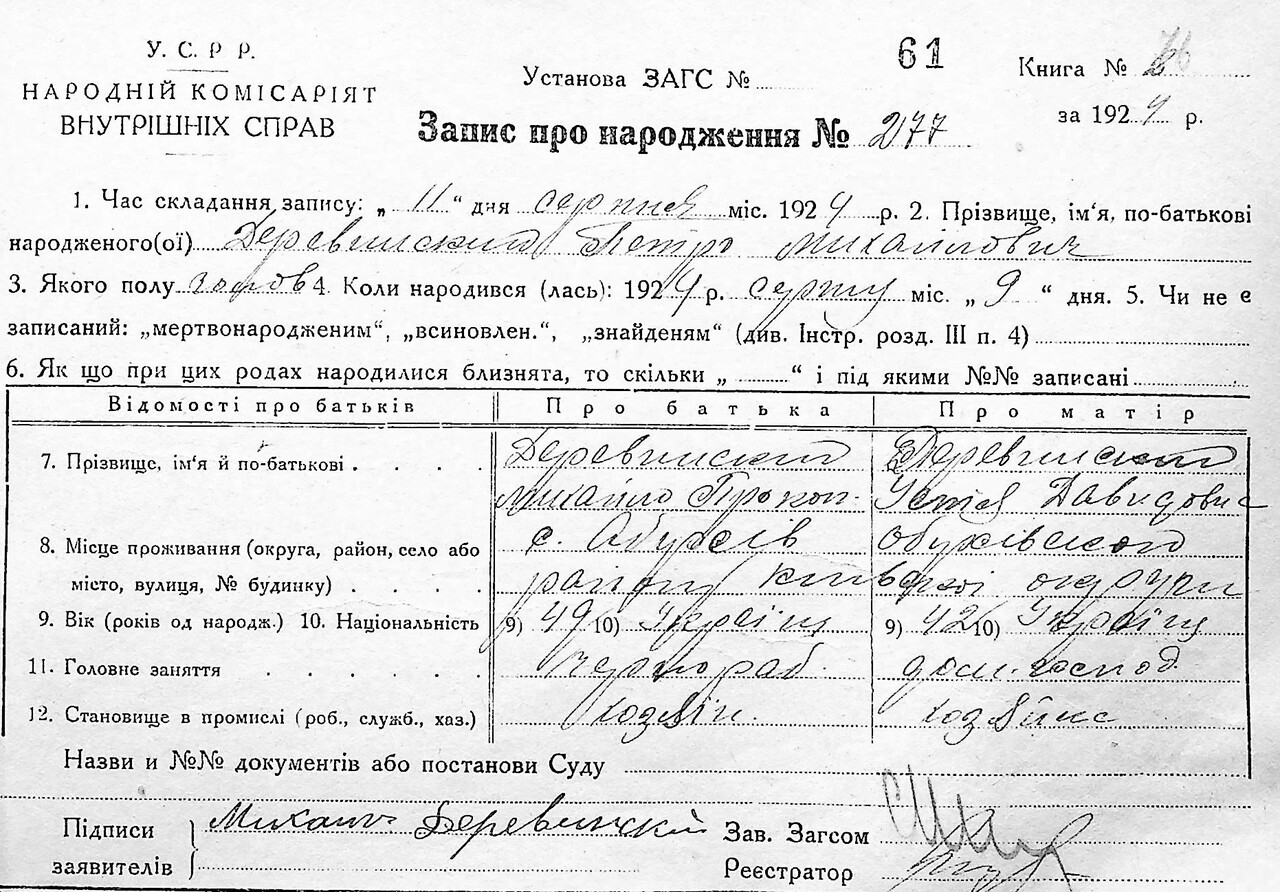 У. С. Р Р.
НАРОДНІЙ КОМІСАРІЯТ
ВНУТРІШНІХ СПРАВ
Установа ЗАГС № 61
Книга №
за 1924 р.
Запис про народження № 277
1. Час складання запису: „ 11 “ дня серпня міс. 1924 р. 2. Прізвище, ім'я, по-батькові
народженого(ої) Деревинский Петро Михайлович
3. Якого полу 4. Коли народився (лась): 1924 р. серпня міс. „ 9 “ дня. 5. Чи не є
записаний: „мертвонародженим“, „всиновлен.“, „знайденям“ (див. Інстр. розд. III п. 4)
6. Як що при цих родах народилися близнята, то скільки „ “ і під якими №№ записані
Відомості про батьків Про батька Про матір
7. Прізвище, ім'я й по-батькові . . . . Деревинский Деревинский
Михайло Прокоп. Устія Давидовна
8. Місце проживання (округа, район, село або с. Обухів Обухівского
місто, вулиця, № будинку) . . . . району Київської округи
9. Вік (років од народж.) 10. Національність 9) 49 10) Україн. 9) 42 10) Україн.
11. Головне заняття . . . . . . чорнораб. дом. господ.
12. Становище в промислі (роб., служб., хаз.) хозяїн. хозяйка
Назви и №№ документів або постанови Суду
Підписи Михайло Деревинский Зав. Загсом
заявителів Реєстратор